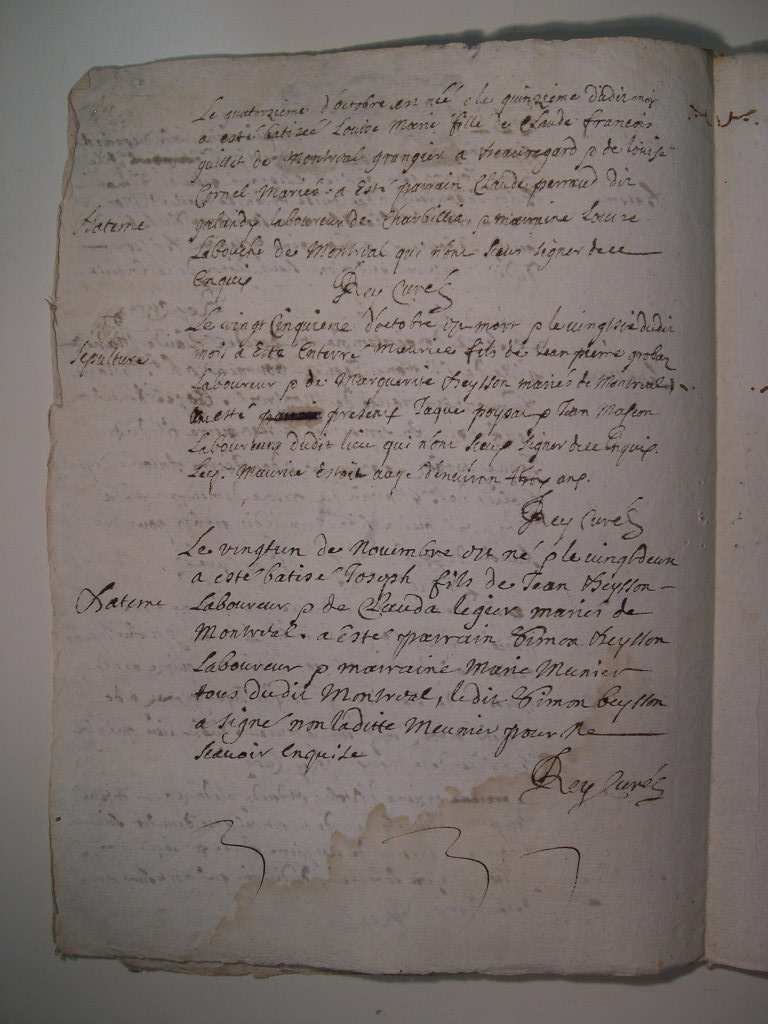 Le quatorzième d'octobre est née et le quinzieme dudit mois
a esté batisée Louise Marie fille de Claude francois
quillet de Montrval grangier a beauregard p de louise
Cornel Mariés. a Esté parrain Claude perraud dit
laboureur de Charbillia p marraine Louise
Bateme
Labouche de Montrval qui n'ont sceus signer de ce
Enquis
Rey Curé
Le vingt Cinquieme d'octobre est mort p le vingtsix dudit
Sepulture
mois a Esté Enterré Maurice fils de Jean pierre
Laboureur p de Marguerite beysson mariés de Montrval
ont esté presens Jaque p Jean Masson
Laboureurs dudit lieu qui n'ont sceus signer de ce Enquis.
Led. Maurice estoit aagé d'environ trois ans.
Rey Curé
Le vingtun de Novembre est né p le vingtdeux
a esté batisé Joseph fils de Jean beysson
Bateme
Laboureur p de Clauda legier mariés de
Montrval. a Esté parrain Simon beysson
Laboureur p marraine Marie Munier
tous dudit Montrval, ledit Simon beysson
a signé non laditte Meunier pour ne
scavoir enquise
Rey Curé